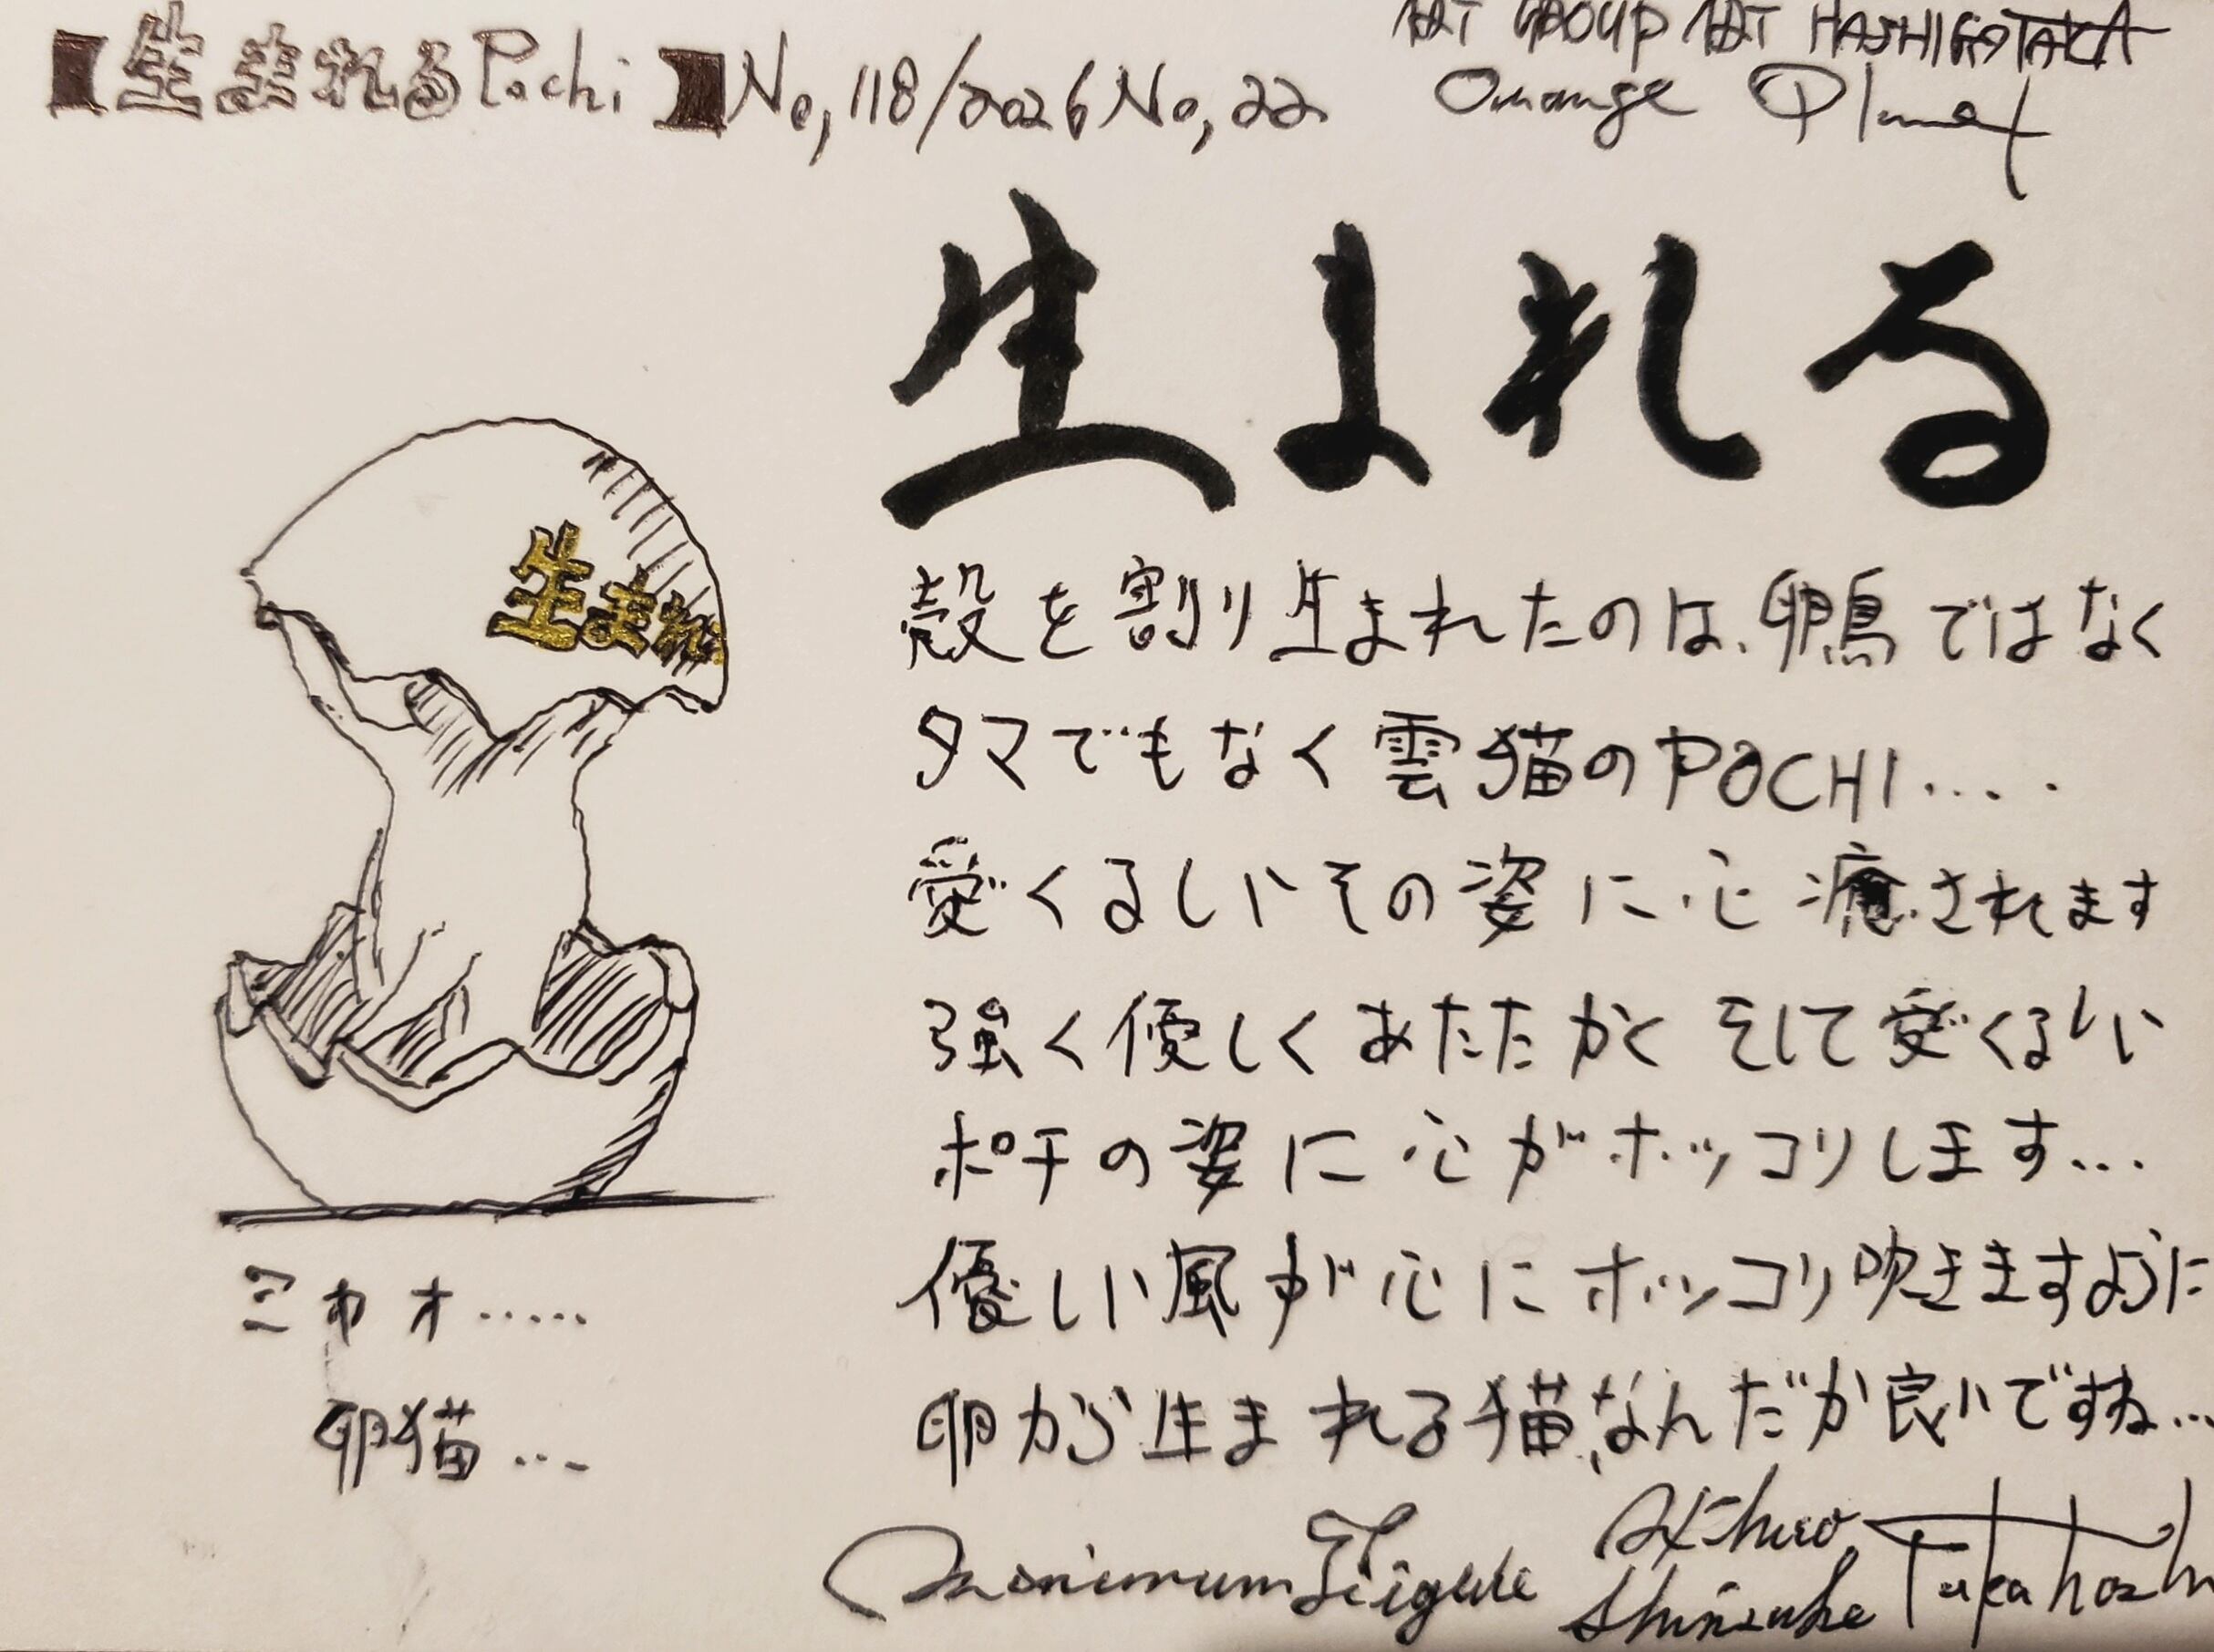 【生まれるPochi】No,118/2026 No,22
ART GROUP ART HASHIGOTAKA
Orange Planet
生まれる
生まれ
殻を割り生まれたのは、卵鳥ではなく
タマでもなく雲猫のPOCHI....
愛くるしいその姿に心癒されます
強く優しくあたたかくそして愛くるしい
ポチの姿に心がホッコリします...
優しい風が心にホッコリ吹きますように
卵から生まれる猫、なんだか良いですね...
ミャオ.....
卵猫...
Minimum Figure
Akihiro
Shinsuke
Takahashi